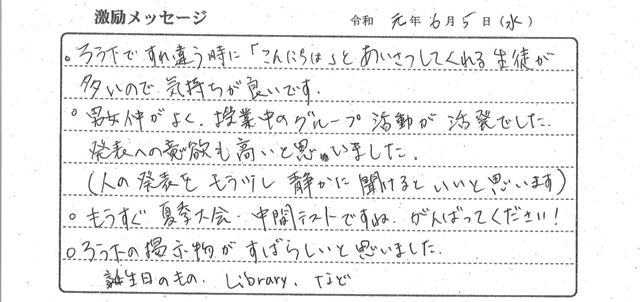 激励メッセージ 令和 元年 6月 5日(水)
○ろう下ですれ違う時に「こんにちは」とあいさつしてくれる生徒が
多いので、気持ちが良いです。
○男女仲がよく、授業中のグループ活動が活発でした。
発表への意欲も高いと思いました。
(人の発表をもう少し静かに聞けるといいと思います)
○もうすぐ夏季大会・中間テストですね。がんばってください!
○ろう下の掲示物がすばらしいと思いました。
誕生日のもの、Library、など